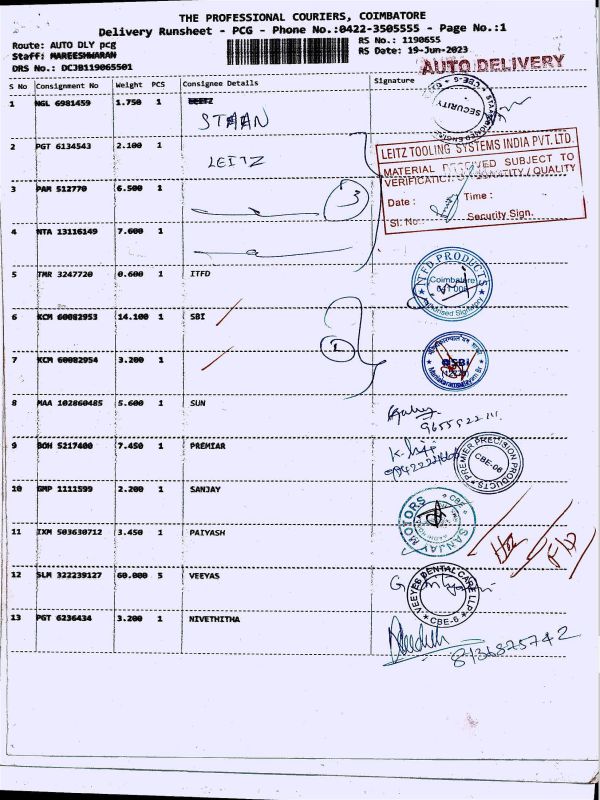 THE PROFESSIONAL COURIERS, COIMBATORE
Delivery Runsheet - PCG - Phone No.:0422-3505555 - Page No.:1
Route: AUTO DLY pcg
Staff: MAREESHWARAN
DRS No.: DCJB119065501
RS No.: 1190655
RS Date: 19-Jun-2023
AUTO DELIVERY
S No Consignment No Weight PCS Consignee Details Signature
1 NGL 6981459 1.750 1 LEITZ
STAAN
SECURITY
2 PGT 6134543 2.100 1 LEITZ
LEITZ TOOLING SYSTEMS INDIA PVT. LTD.
MATERIAL RECEIVED SUBJECT TO
VERIFICATION QUANTITY / QUALITY
Date : Time :
Sl. No. Security Sign.
3 PAM 512770 6.500 1
3
4 NTA 13116149 7.600 1
5 TMR 3247720 0.600 1 ITFD
PRODUCTS
Coimbatore
Authorised Signatory
6 KCM 60082953 14.100 1 SBI
7 KCM 60082954 3.200 1
SBI
8 MAA 102860485 5.600 1 SUN
9 BOH 5217400 7.450 1 PREMIAR
PREMIER PRECISION PRODUCTS
CBE-06
10 GMP 1111599 2.200 1 SANJAY
SANJAY MOTORS
CBE
11 IXM 503630712 3.450 1 PAIYASH
12 SLM 322239127 60.000 5 VEEYAS
VEEYES DENTAL CARE LLP
CBE-6
13 PGT 6236434 3.200 1 NIVETHITHA
8136875742